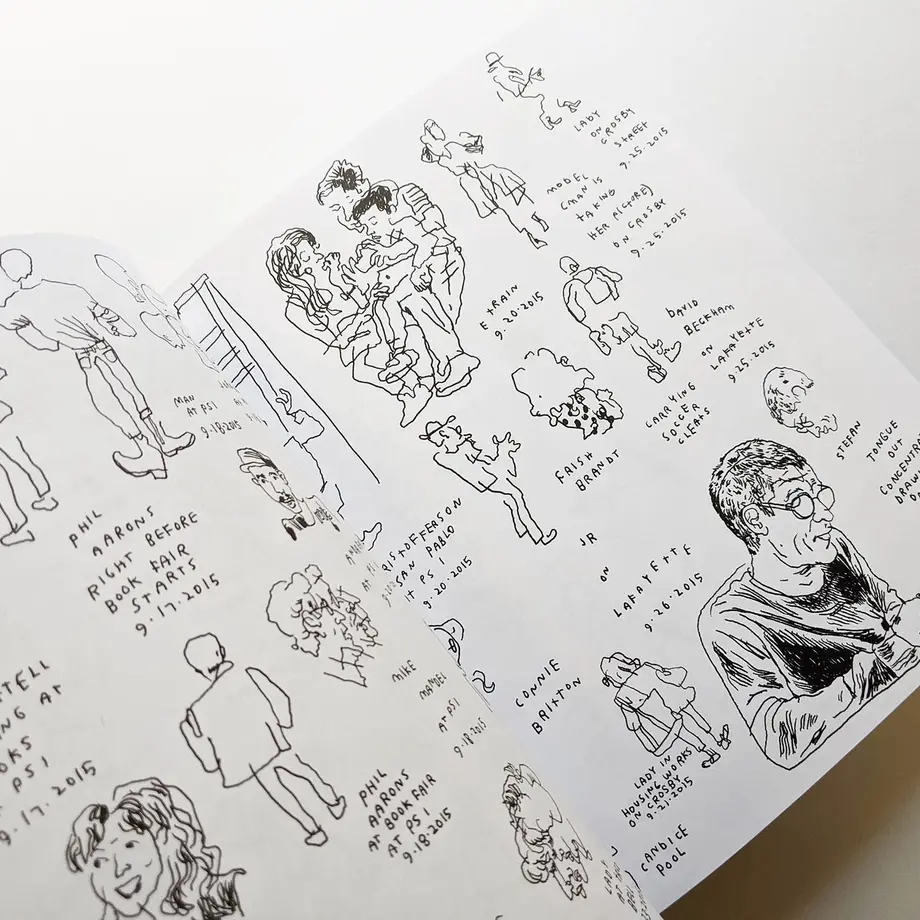 MAN
AT PS1
9.18.2015
PHIL
AARONS
RIGHT BEFORE
BOOK FAIR
STARTS
9.17.2015
AT
PS1
9.17.2015
MIKE
MANDEL
AT PS1
9.18.2015
PHIL
AARONS
AT BOOK FAIR
AT PS1
9.18.2015
LADY
ON
CROSBY
STREET
9.25.2015
MODEL
(MAN IS
TAKING
HER PICTURE)
ON CROSBY
9.25.2015
E TRAIN
9.20.2015
DAVID
BECKHAM
ON
LAFAYETTE
9.25.2015
CARRYING
SOCCER
CLEATS
FRISH
BRANDT
STEFAN
TONGUE
OUT
SAN PABLO
PS1
9.20.2015
JR
ON
LAFAYETTE
9.26.2015
CONNIE
BRITTON
LADY IN
HOUSING WORKS
ON CROSBY
9.21.2015
CANDICE
POOL